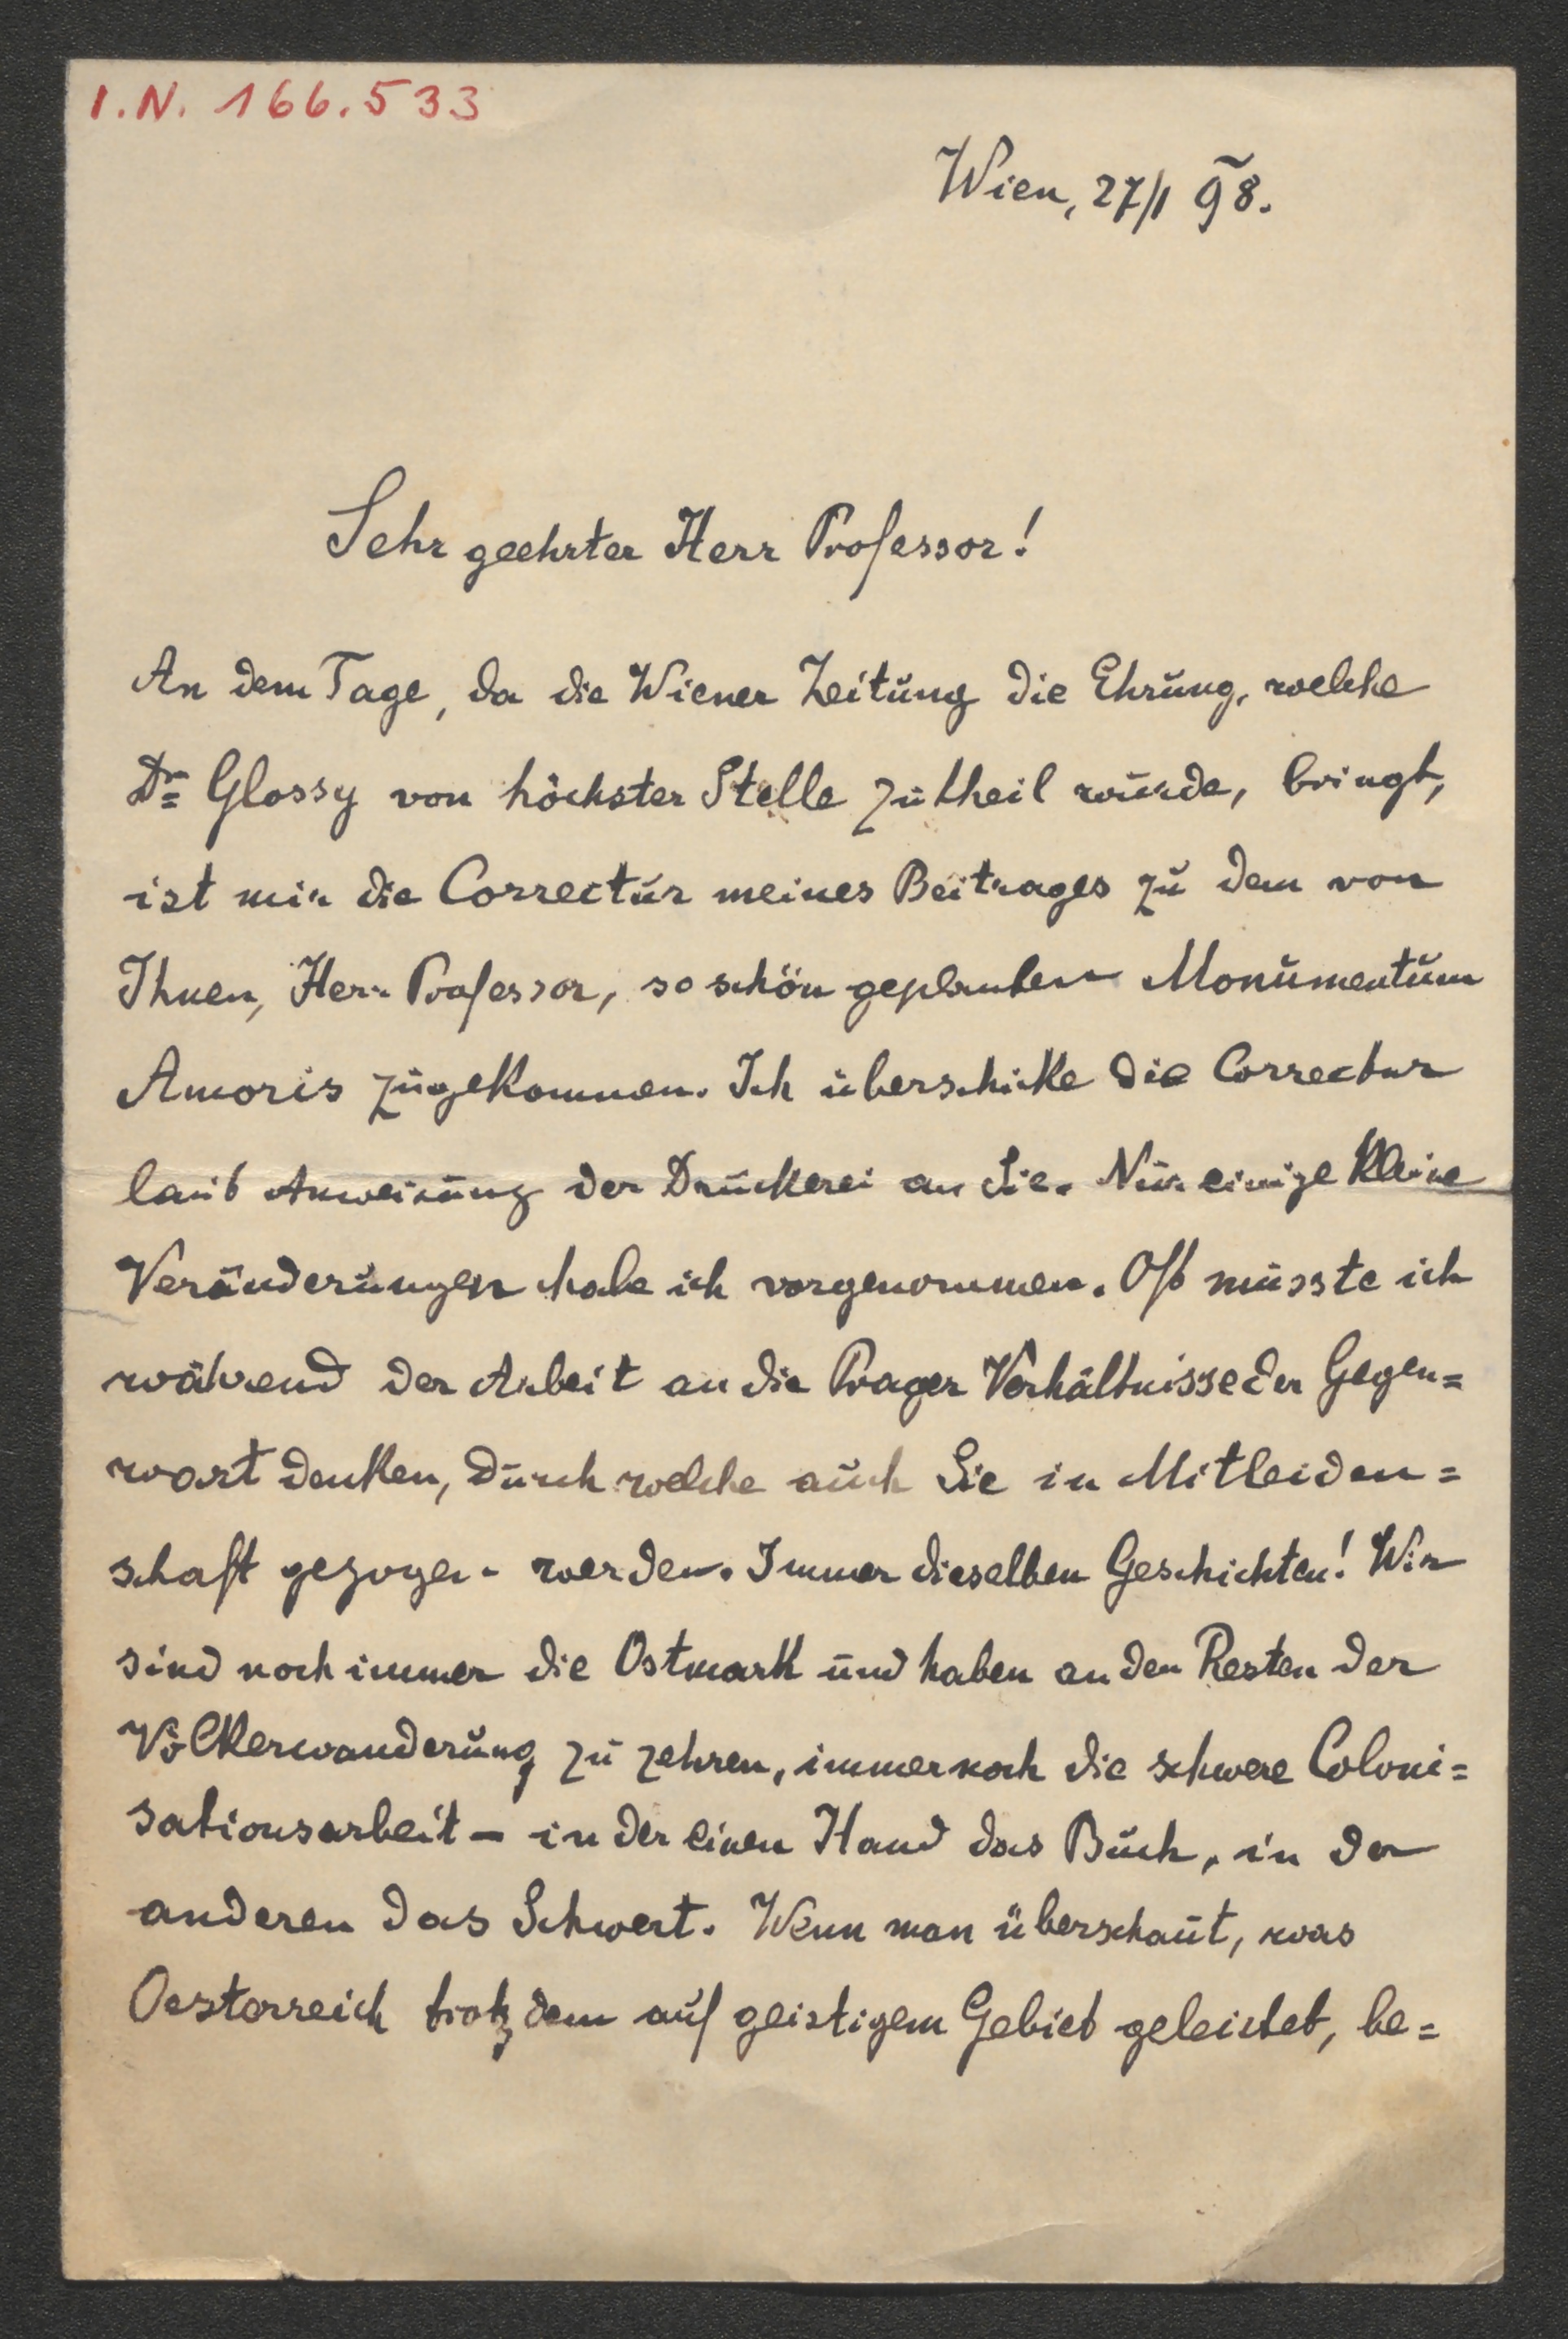 I.N. 166.533
Wien, 27/1 98.
Sehr geehrter Herr Professor!
An dem Tage, da die Wiener Zeitung die Ehrung, welche
Dr Glossy von höchster Stelle zutheil wurde, bringt,
ist mir die Correctur meines Beitrages zu dem von
Ihnen, Herr Professor, so schön geplanten Monumentum
Amoris zugekommen. Ich überschicke die Correctur
laut Anweisung der Druckerei an Sie. Nur einige kleine
Veränderungen habe ich vorgenommen. Oft musste ich
während der Arbeit an die Prager Verhältnisse der Gegen=
wart denken, durch welche auch Sie in Mitleiden=
schaft gezogen werden. Immer dieselben Geschichten! Wir
sind noch immer die Ostmark und haben an den Resten der
Völkerwanderung zu zehren, immer noch die schwere Coloni=
sationsarbeit – in der einen Hand das Buch, in der
anderen das Schwert. Wenn man überschaut, was
Oesterreich trotzdem auf geistigem Gebiet geleistet, be=